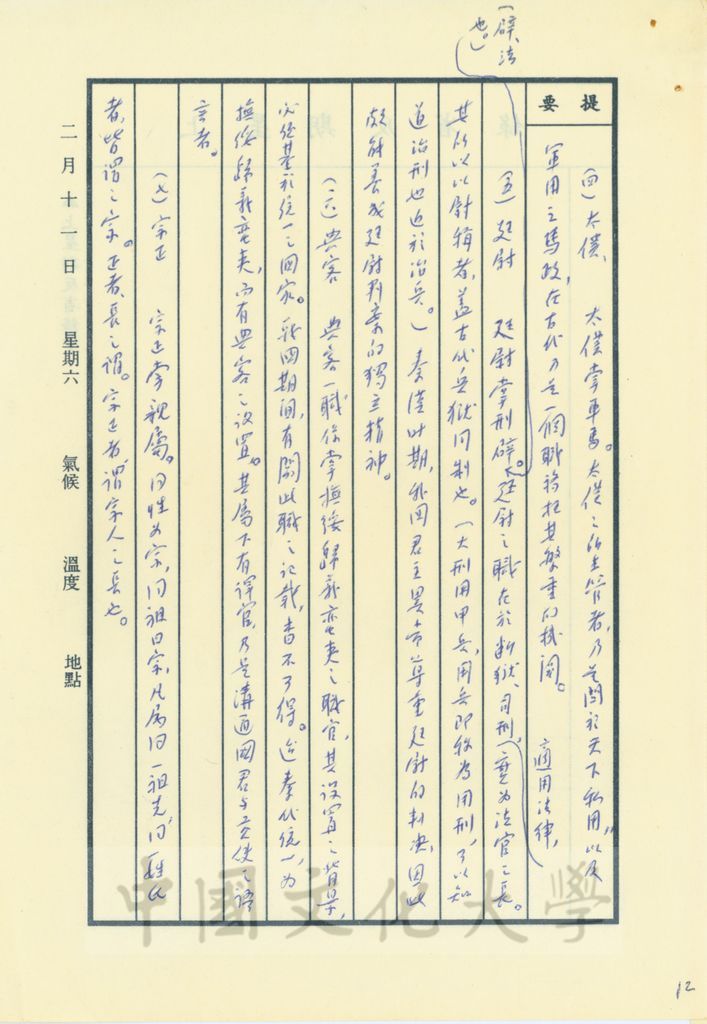 （辟、法
也。）
提要
（四）太僕、　太僕掌車馬。太僕之所主管者，乃是關於天下私用，以及
軍用之馬政，在古代乃是一個職務極其繁重的機關。
適用法律，
（五）廷尉　廷尉掌刑辟。廷尉之職在於斷獄、司刑，實為法官之長。
其所以以尉稱者，蓋古代兵獄同制也。（大刑用甲兵，用兵即較為用刑，可以知
道治刑也近於治兵。）秦漢時期，我國君主異常尊重廷尉的判決，因此
頗能養成廷尉判案的獨立精神。
（六）典客　典客一職係掌撫綏歸義蠻夷之職官，其設置之背景，
必從基於統一之國家。戰國期間，有關此職之記載，杳不可得。迨秦代統一，為
撫綏歸義蠻夷，而有典客之設置。其屬下有譯官，乃是溝通國君與貢使之語
言者。
（七）宗正　宗正掌親屬。同姓為宗，同祖曰宗，凡屬同一祖先，同一姓氏
者，皆謂之宗。正者，長之謂。宗正者，謂宗人之長也。
二月十一日　星期六　氣候　溫度　地點
中國文化大學
12